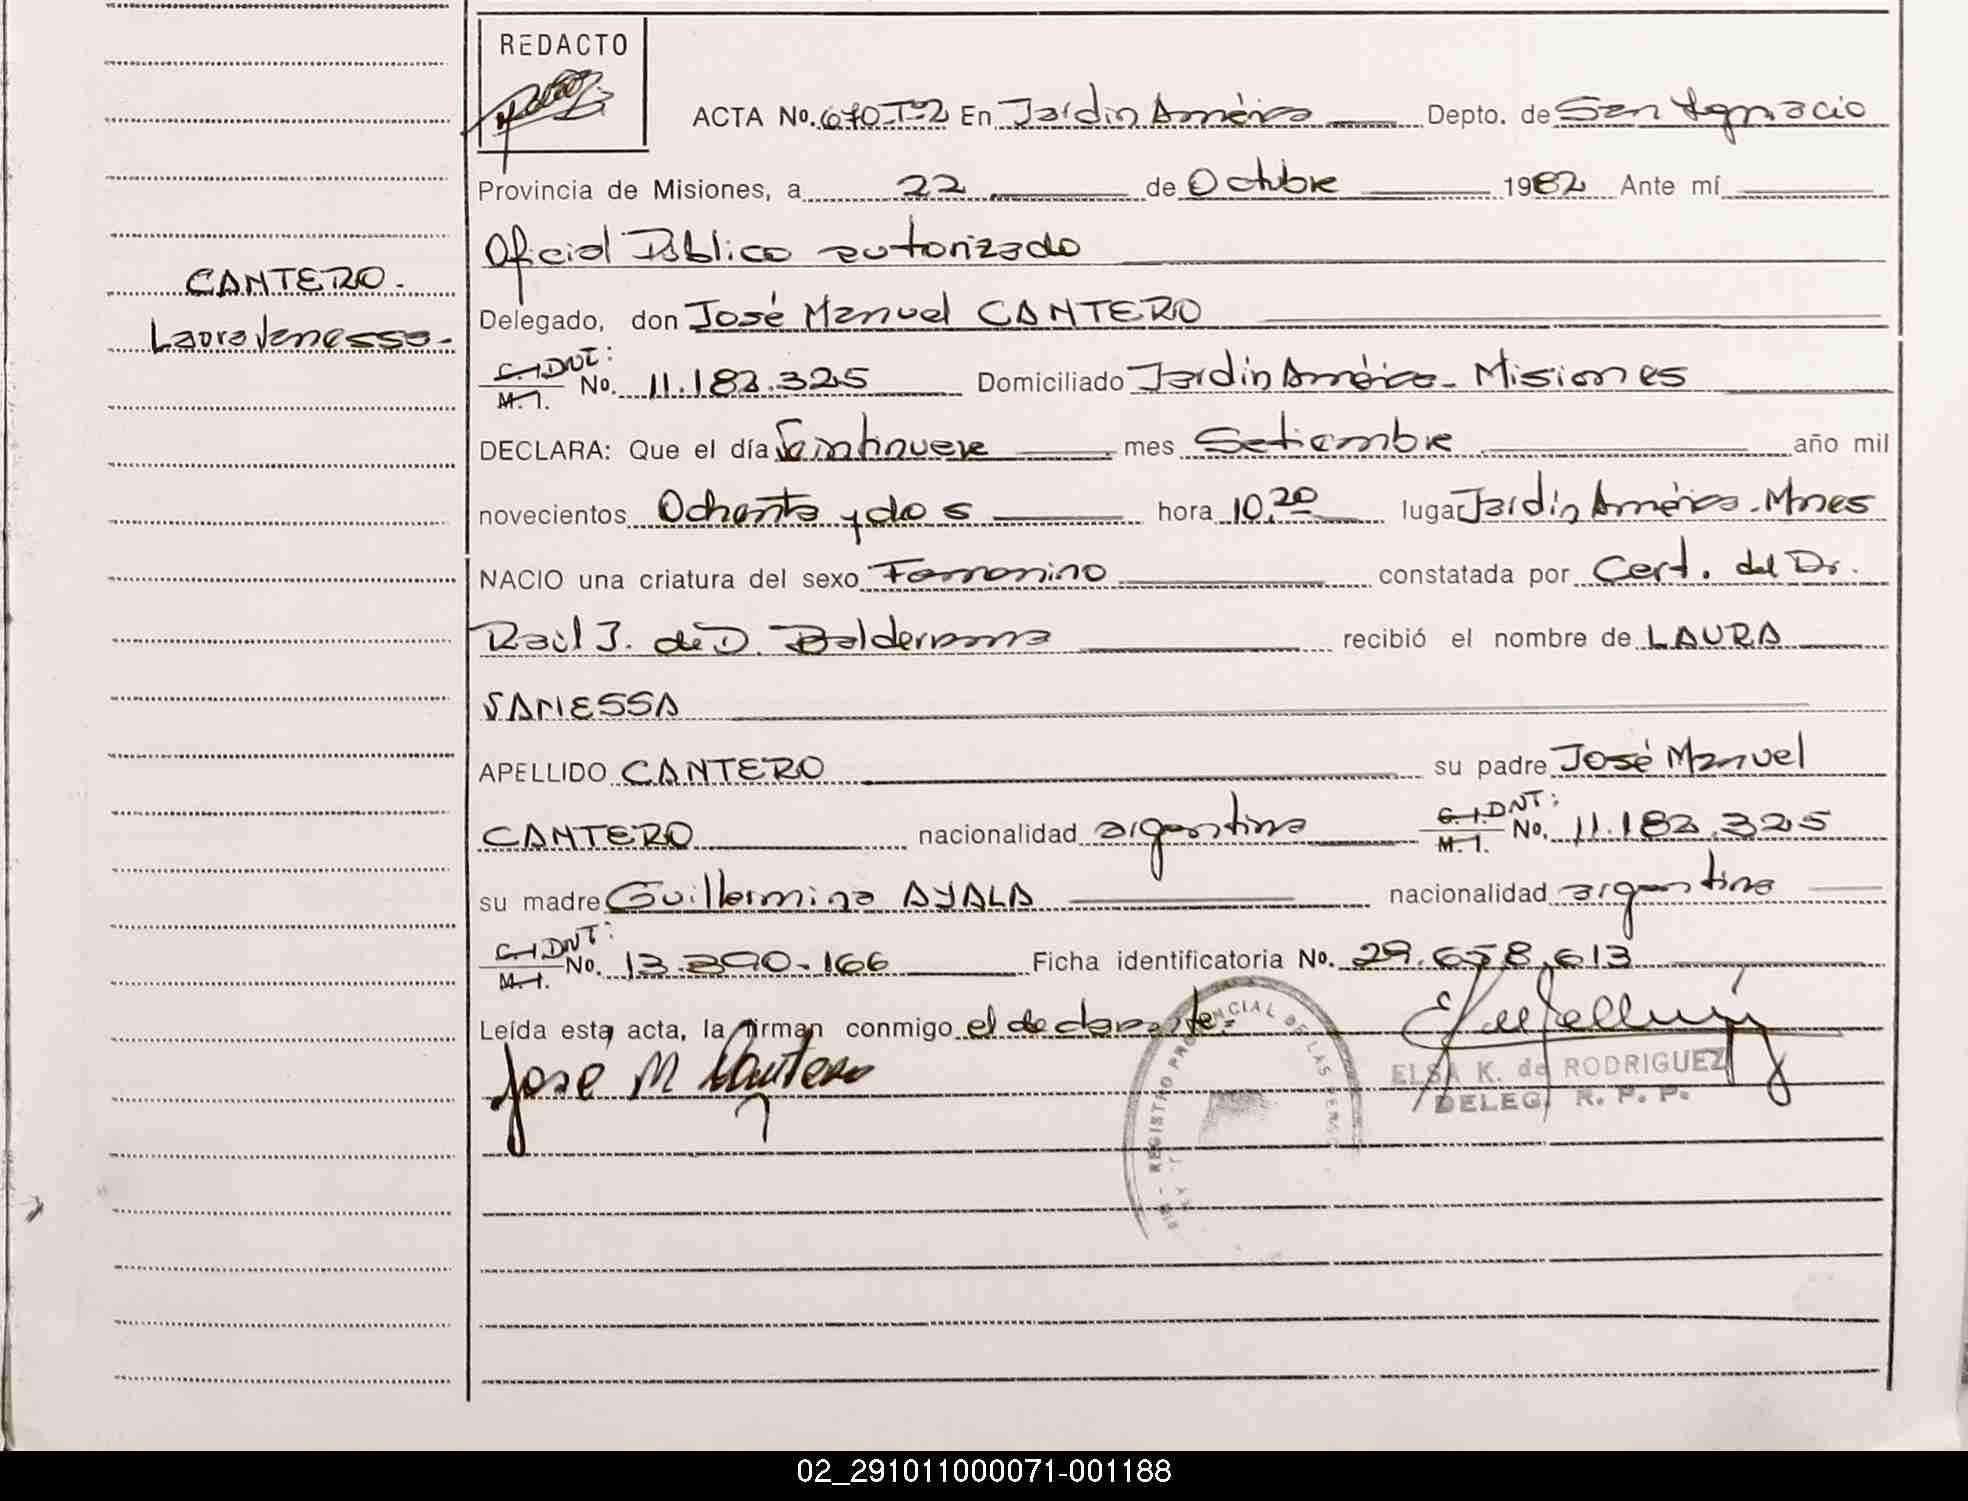 REDACTO
ACTA No. 670-Tº2 En Jardín América Depto. de San Ignacio
Provincia de Misiones, a 22 de Octubre 1982 Ante mí
Oficial Público autorizado
CANTERO.
Laura Vanessa.
Delegado, don José Manuel CANTERO
C.I. DNI:
M.I. No. 11.182.325 Domiciliado Jardín América - Misiones
DECLARA: Que el día Veintinueve mes Setiembre año mil
novecientos Ochenta y dos hora 10,20 lugar Jardín América. Mnes
NACIO una criatura del sexo Femenino constatada por Cert. del Dr.
Raúl J. de D. Balderrama recibió el nombre de LAURA
VANESSA
APELLIDO CANTERO su padre José Manuel
CANTERO nacionalidad argentina C.I. DNI: M.I. No. 11.182.325
su madre Guillermina AYALA nacionalidad argentina
C.I. DNI: M.I. No. 13.390.166 Ficha identificatoria No. 29.658.613
Leída esta acta, la firman conmigo el declarante.
José M Cantero
ELSA K. de RODRIGUEZ
DELEG. R. P. P.
REGISTRO PROVINCIAL DE LAS PERSO
02_291011000071-001188